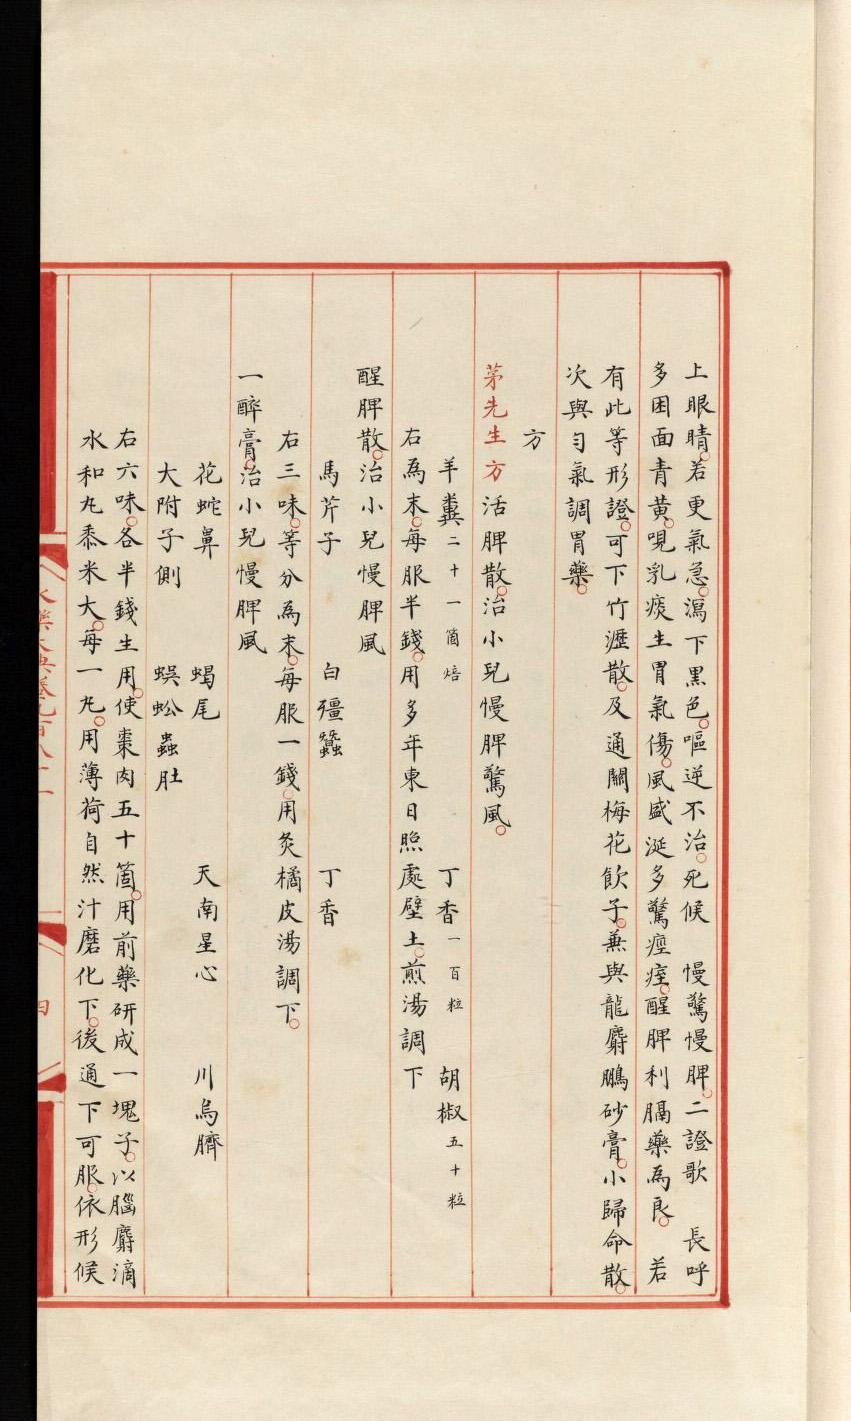 上眼睛。若更氣急。瀉下黑色。嘔逆不治。死候　慢驚慢脾。二證歌　長呼
多困面青黃。哯乳痰生胃氣傷。風盛涎多驚瘂㾏。醒脾利膈藥為良。　若
有此等形證。可下竹瀝散。及通關梅花飲子。兼與龍麝鵬砂膏。小歸命散。
次與勻氣調胃藥。
方
茅先生方活脾散。治小兒慢脾驚風。
羊糞二十一箇焙　丁香一百粒　胡椒五十粒
右為末。每服半錢。用多年東日照處壁土。煎湯調下
醒脾散。治小兒慢脾風
馬芹子　白殭蠶　丁香
右三味。等分為末。每服一錢。用炙橘皮湯調下。
一醉膏。治小兒慢脾風
花蛇鼻　蝎尾　天南星心　川烏臍
大附子側　蜈蚣蟲肚
右六味。各半錢生用。使棗肉五十箇。用前藥研成一塊子。以腦麝滴
水和丸黍米大。每一丸。用薄荷自然汁磨化下。後通下可服。依形候
永樂大典卷九百八十一
四